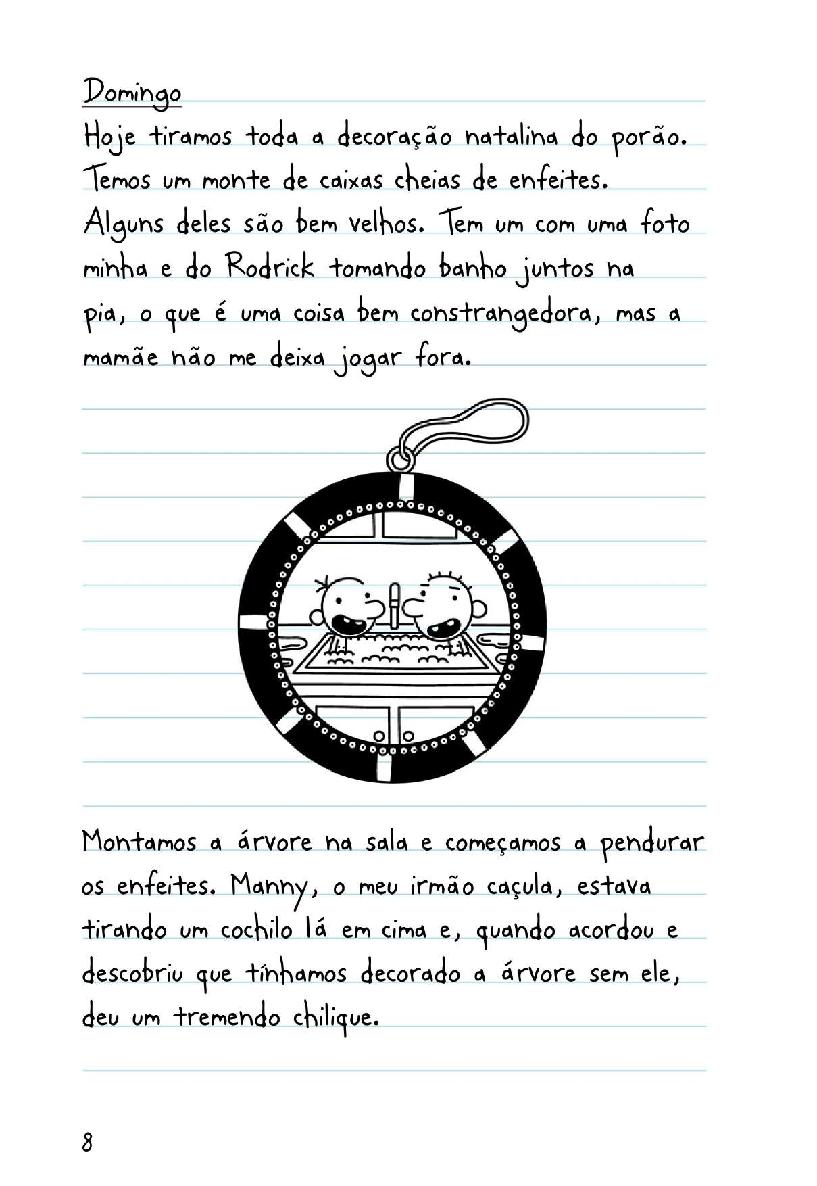 Domingo
Hoje tiramos toda a decoração natalina do porão.
Temos um monte de caixas cheias de enfeites.
Alguns deles são bem velhos. Tem um com uma foto
minha e do Rodrick tomando banho juntos na
pia, o que é uma coisa bem constrangedora, mas a
mamãe não me deixa jogar fora.
Montamos a árvore na sala e começamos a pendurar
os enfeites. Manny, o meu irmão caçula, estava
tirando um cochilo lá em cima e, quando acordou e
descobriu que tínhamos decorado a árvore sem ele,
deu um tremendo chilique.
8